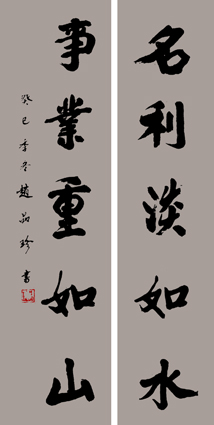 名利淡如水
事業重如山
癸巳季冬趙品珍書